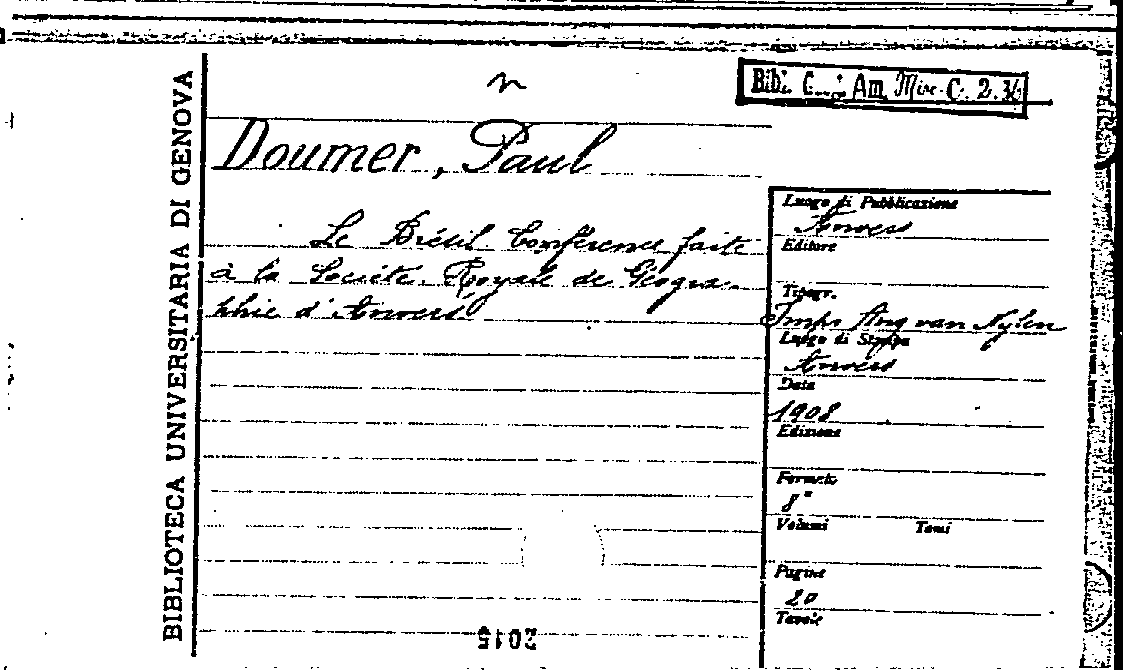 BIBLIOTECA UNIVERSITARIA DI GENOVA
Bibl. C Am. Misc. C. 2.
Doumer, Paul
Le Brésil Conférence faite
à la Société Royale de Géogra-
phie d'Anvers
Luogo di Pubblicazione
Anvers
Editore
Tipogr.
Imp. Aug van Nylen
Luogo di Stampa
Anvers
Data
1908
Edizione
Formato
8°
Volumi Tomi
Pagine
20
Tavole
2015